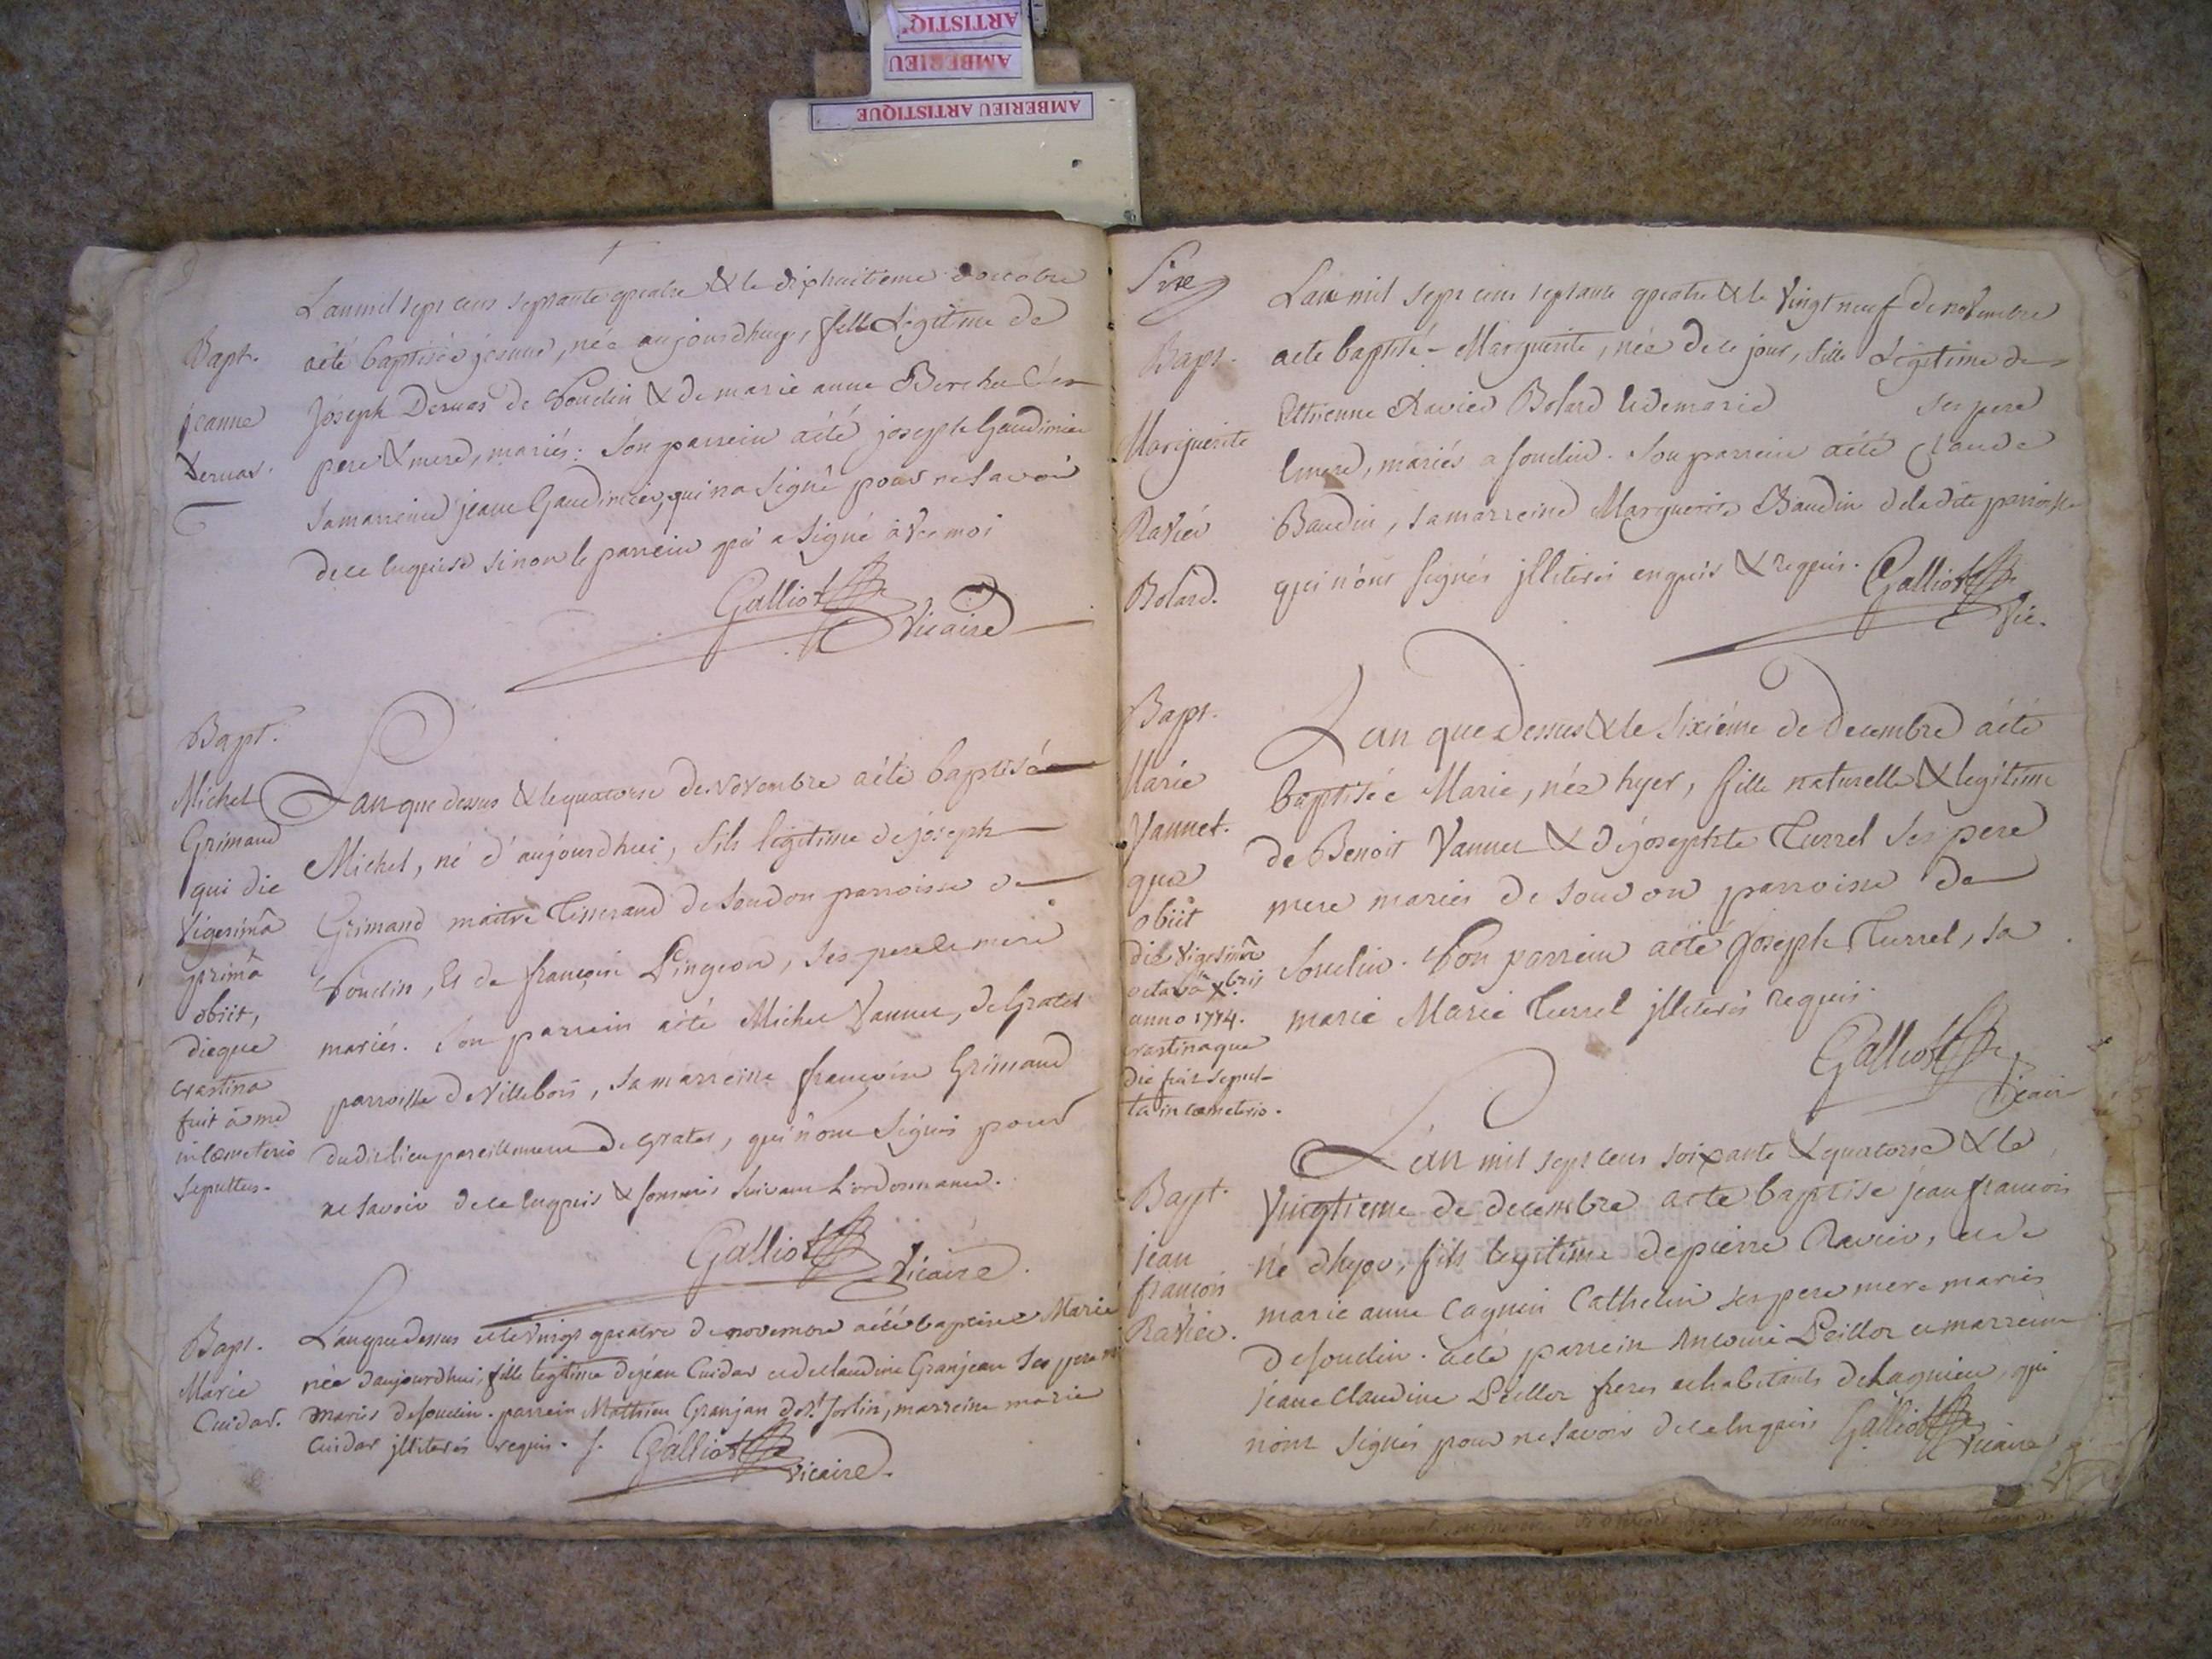 ARTISTIQ
AMBERIEU
AMBERIEU ARTISTIQUE
L'an mil sept cens septante quatre & le dixhuitieme d'octobre
Bapt.
jeanne
Dervas.
aété baptisée jeanne, née aujourdhuy, fille Légitime de
Joseph Dervas de Soudin & de marie anne Berchu
pere & mere, mariés: Son parrein aété joseph Gaudinier
Samarreine jeane Gaudinier, qui na Signé pour ne Savoir
dece Enquise sinon le parrein qui a Signé avec moi
Galliot
Vicaire
Bapt.
Michel
Grimand
qui die
Vigesimâ
primâ
obiit,
dieque
crastina
fuit à me
in cœmeterio
sepultus.
L'an que dessus & le quatorse de Novembre aété baptisé
Michel, né d'aujourdhui, fils légitime de joseph
Grimand maitre Tisserand de Soudon parroisse de
Soudin, Et de françoise Pingeon, ses pere & mere
mariés. Son parrein aété Michel Vannet, de Grates
parroisse de Villebois, Sa marreine françoise Grimand
dudit lieu pareillement de Grates, qui n'ont Signés pour
ne Savoir de ce Enquis & sommés Suivant L'ordonnance.
Galliot
Vicaire.
Bapt.
Marie
Cuidar.
L'an que dessus et le Vingt quatre de novembre aété baptisée Marie
née d'aujourdhui, fille légitime de jean Cuidar et de Claudine Granjean Ses pere
mariés de soudin. parrein Mathieu Granjan de St. Sorlin, marreine marie
Cuidar jlliterés requis.
Galliot
Vicaire.
Bapt.
Marguerite
Ravier
Bolard.
L'an mil sept cens septante quatre & le Vingt neuf de novembre
aété baptisé Marguerite, née de ce jour, fille Légitime de
Etienne Ravier Bolard & de marie ses pere
& mere, mariés a soudin. Son parrein aété Claude
Baudin, samarreine Marguerite Baudin deladite parroisse
qui n'ont Signés jlliterés enquis & requis.
Galliot
Vic.
Bapt.
Marie
Vannet.
quæ
obiit
die Vigesimâ
octavâ Xbris
anno 1774.
crastinaque
die fuit sepul-
ta in cœmeterio.
L'an que Dessus & le Sixiéme de Decembre aété
baptisée Marie, née hyer, fille naturelle & legitime
de Benoit Vannet & de josephte Turrel Ses pere
mere mariés de Soudon parroisse de
Soudin. Son parrein aété Joseph Turrel, sa
marie Marie Turrel jlliterés requis.
Galliot
Vicair
Bapt.
jean
francois
Ravier.
L'an mil sept cens soixante & quatorse & le
Vingtieme de decembre aeté baptisé jean francois
né d'hyer, fils legitime de pierre Ravier, et de
marie anne Cagnin Cathelin ses pere mere mariés
de soudin. aété parrein Antoine Peillor et marreine
jeane Claudine Peillor freres et habitants de Lagnieu, qui
n'ont Signés pour ne savoir de ce Enquis
Galliot
Vicaire